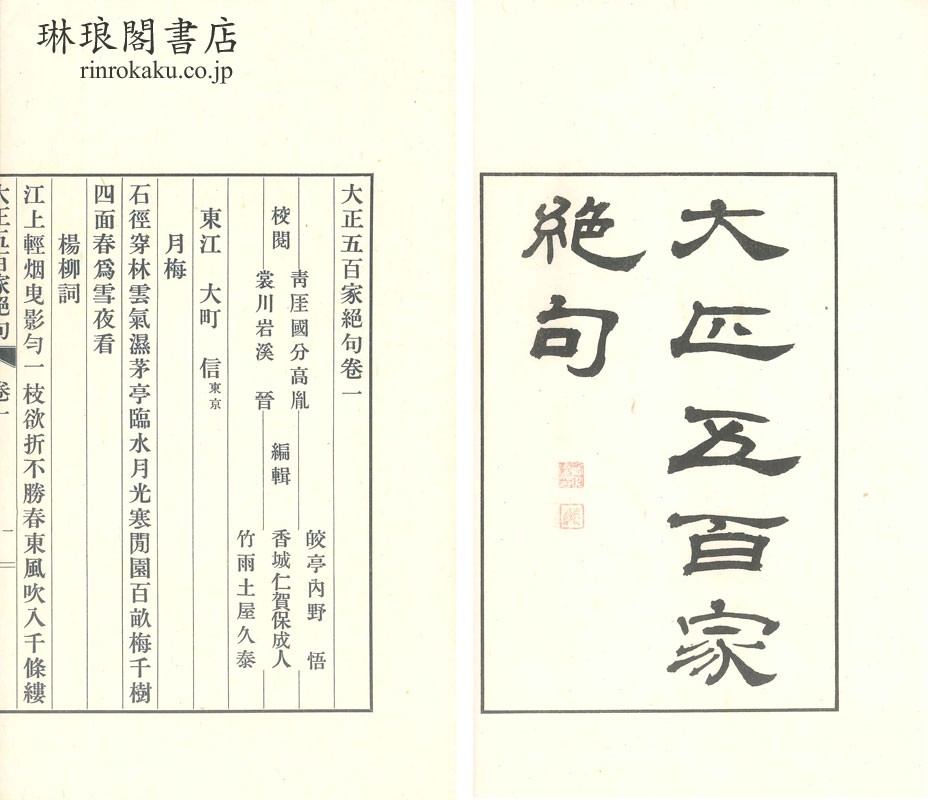 琳琅閣書店
rinrokaku.co.jp
大正五百家
絶句
大正五百家絕句卷一
校閱
靑厓國分高胤
裳川岩溪　晉
編輯
皎亭內野　悟
香城仁賀保成人
竹雨土屋久泰
東江　大町　信東京
月梅
石徑穿林雲氣濕茅亭臨水月光寒閒園百畝梅千樹
四面春爲雪夜看
楊柳詞
江上輕烟曳影勻一枝欲折不勝春東風吹入千條縷
大正五百家絕句　卷一
一